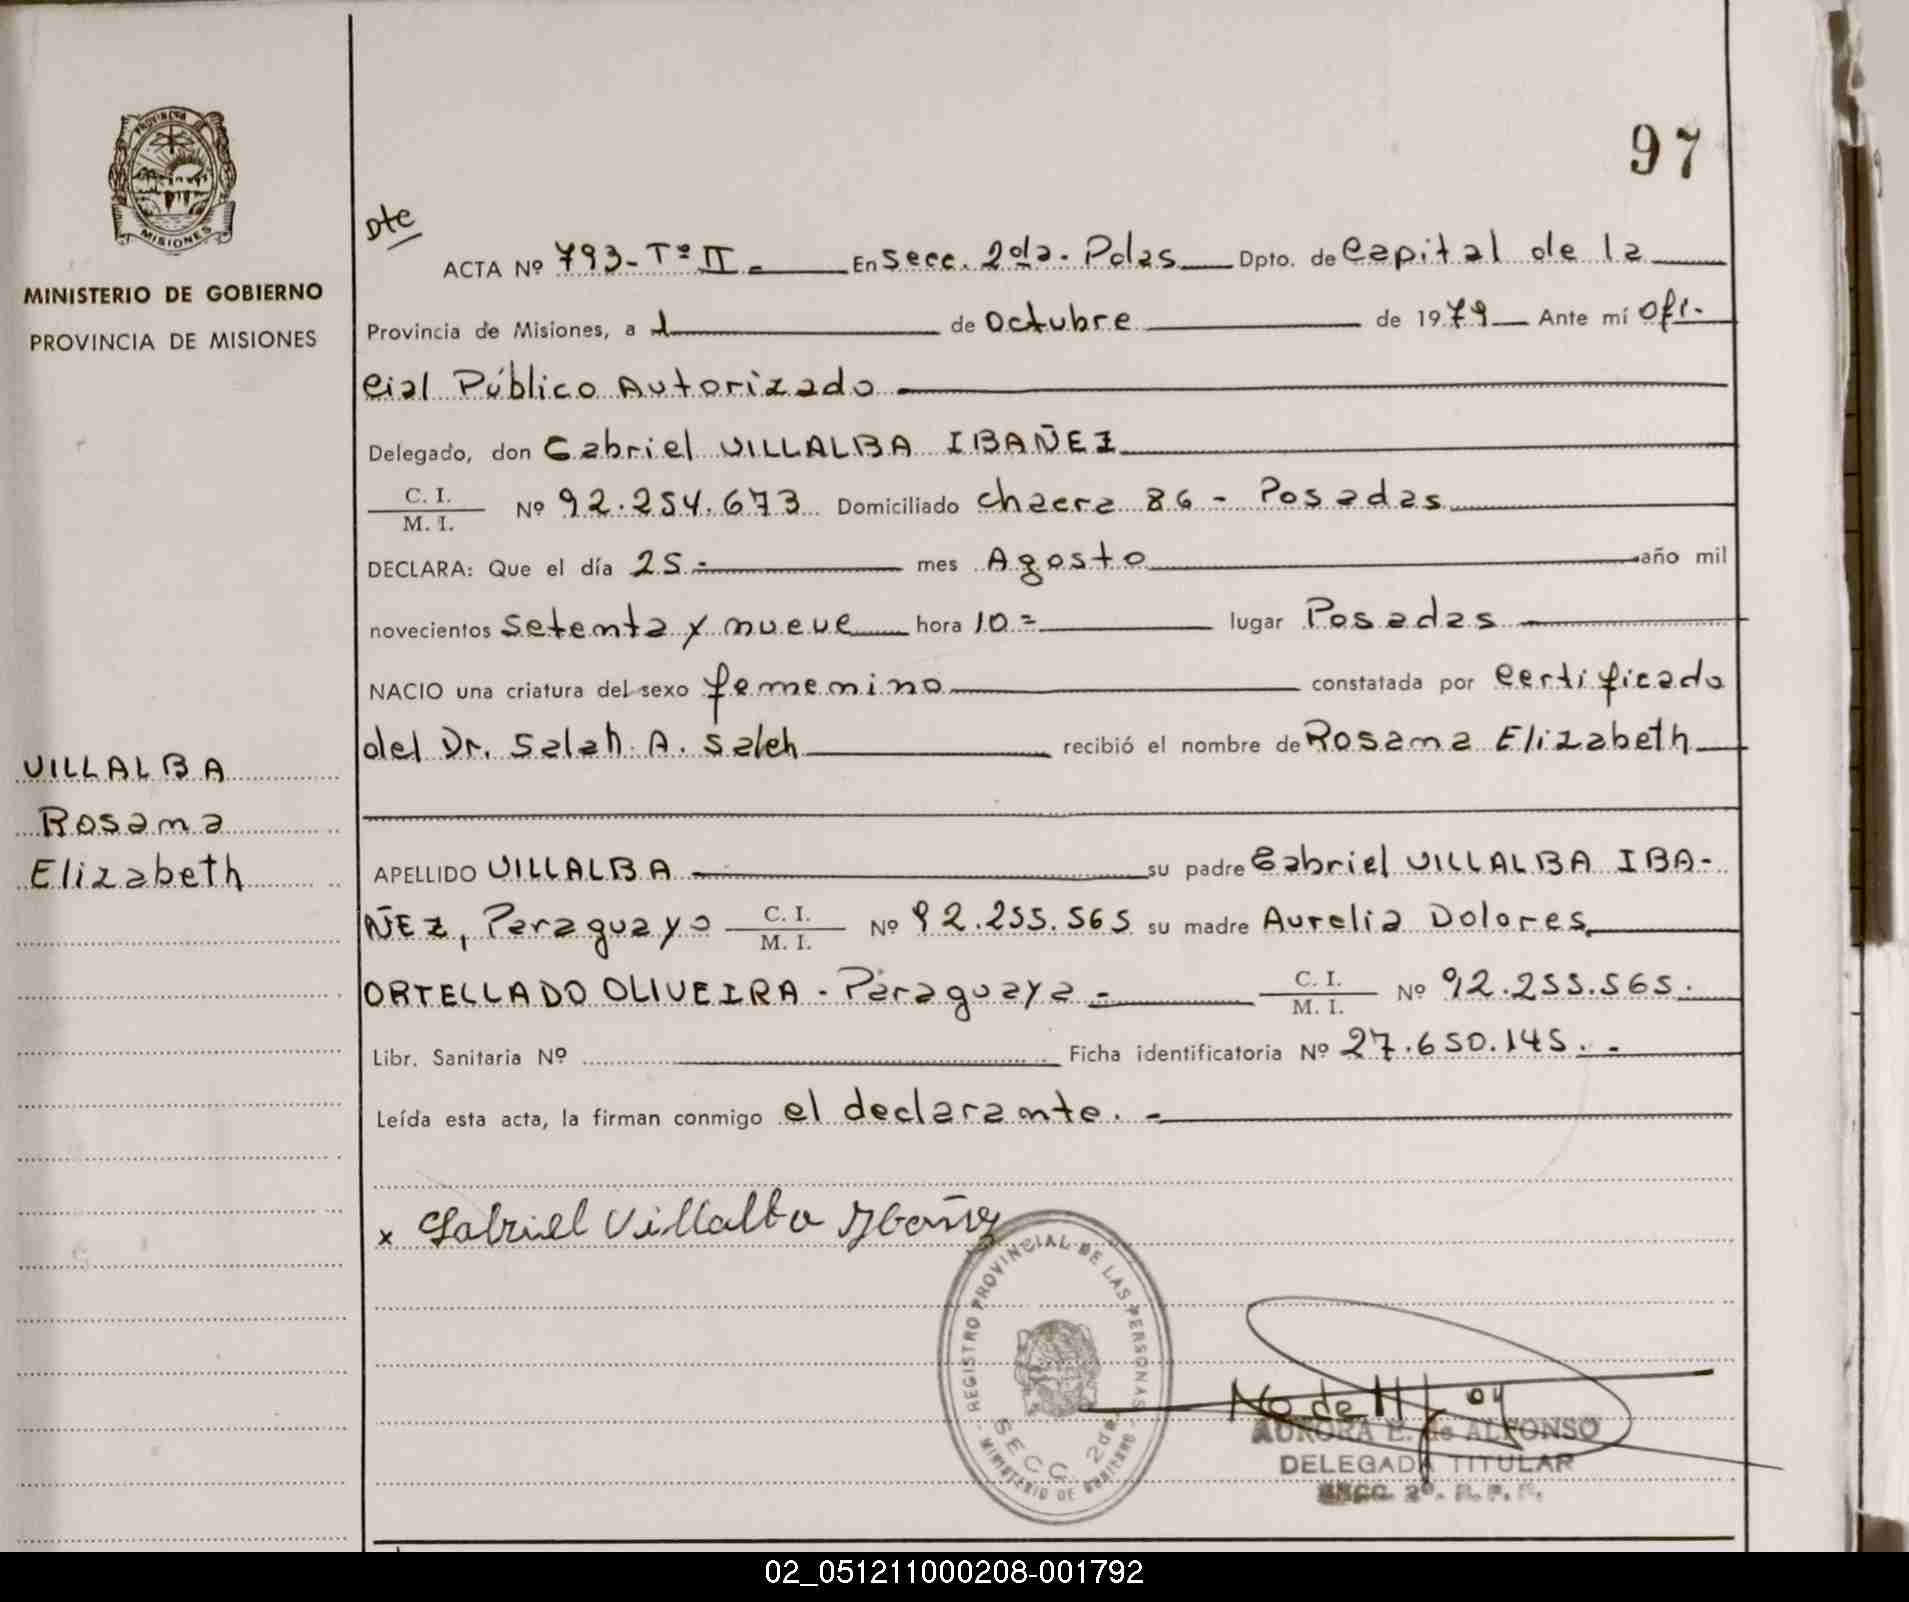 97
Dte
ACTA Nº 793-Tº II - En Secc. 2da. Pdas Dpto. de Capital de la
PROVINCIA DE MISIONES
MINISTERIO DE GOBIERNO
PROVINCIA DE MISIONES
Provincia de Misiones, a 1 de Octubre de 1979 Ante mí Ofi-
cial Público Autorizado
Delegado, don Gabriel VILLALBA IBAÑEZ
C. I.
M. I. Nº 92.254.673 Domiciliado chacra 86 - Posadas
DECLARA: Que el día 25.- mes Agosto año mil
novecientos setenta y nueve hora 10= lugar Posadas
NACIO una criatura del sexo femenino constatada por certificado
del Dr. Salah A. Saleh recibió el nombre de Rosana Elizabeth
VILLALBA
Rosana
Elizabeth
APELLIDO VILLALBA su padre Gabriel VILLALBA IBA-
ÑEZ, Paraguayo C. I. M. I. Nº 92.255.565 su madre Aurelia Dolores
ORTELLADO OLIVEIRA - Paraguaya - C. I. M. I. Nº 92.255.565.
Libr. Sanitaria Nº Ficha identificatoria Nº 27.650.145. -
Leída esta acta, la firman conmigo el declarante. -
x Gabriel Villalba Ybañez
REGISTRO PROVINCIAL DE LAS PERSONAS
SECC. 2da.
MINISTERIO DE GOBIERNO
AURORA E. de ALFONSO
DELEGADA TITULAR
SECC. 2º. R. P. P.
02_051211000208-001792